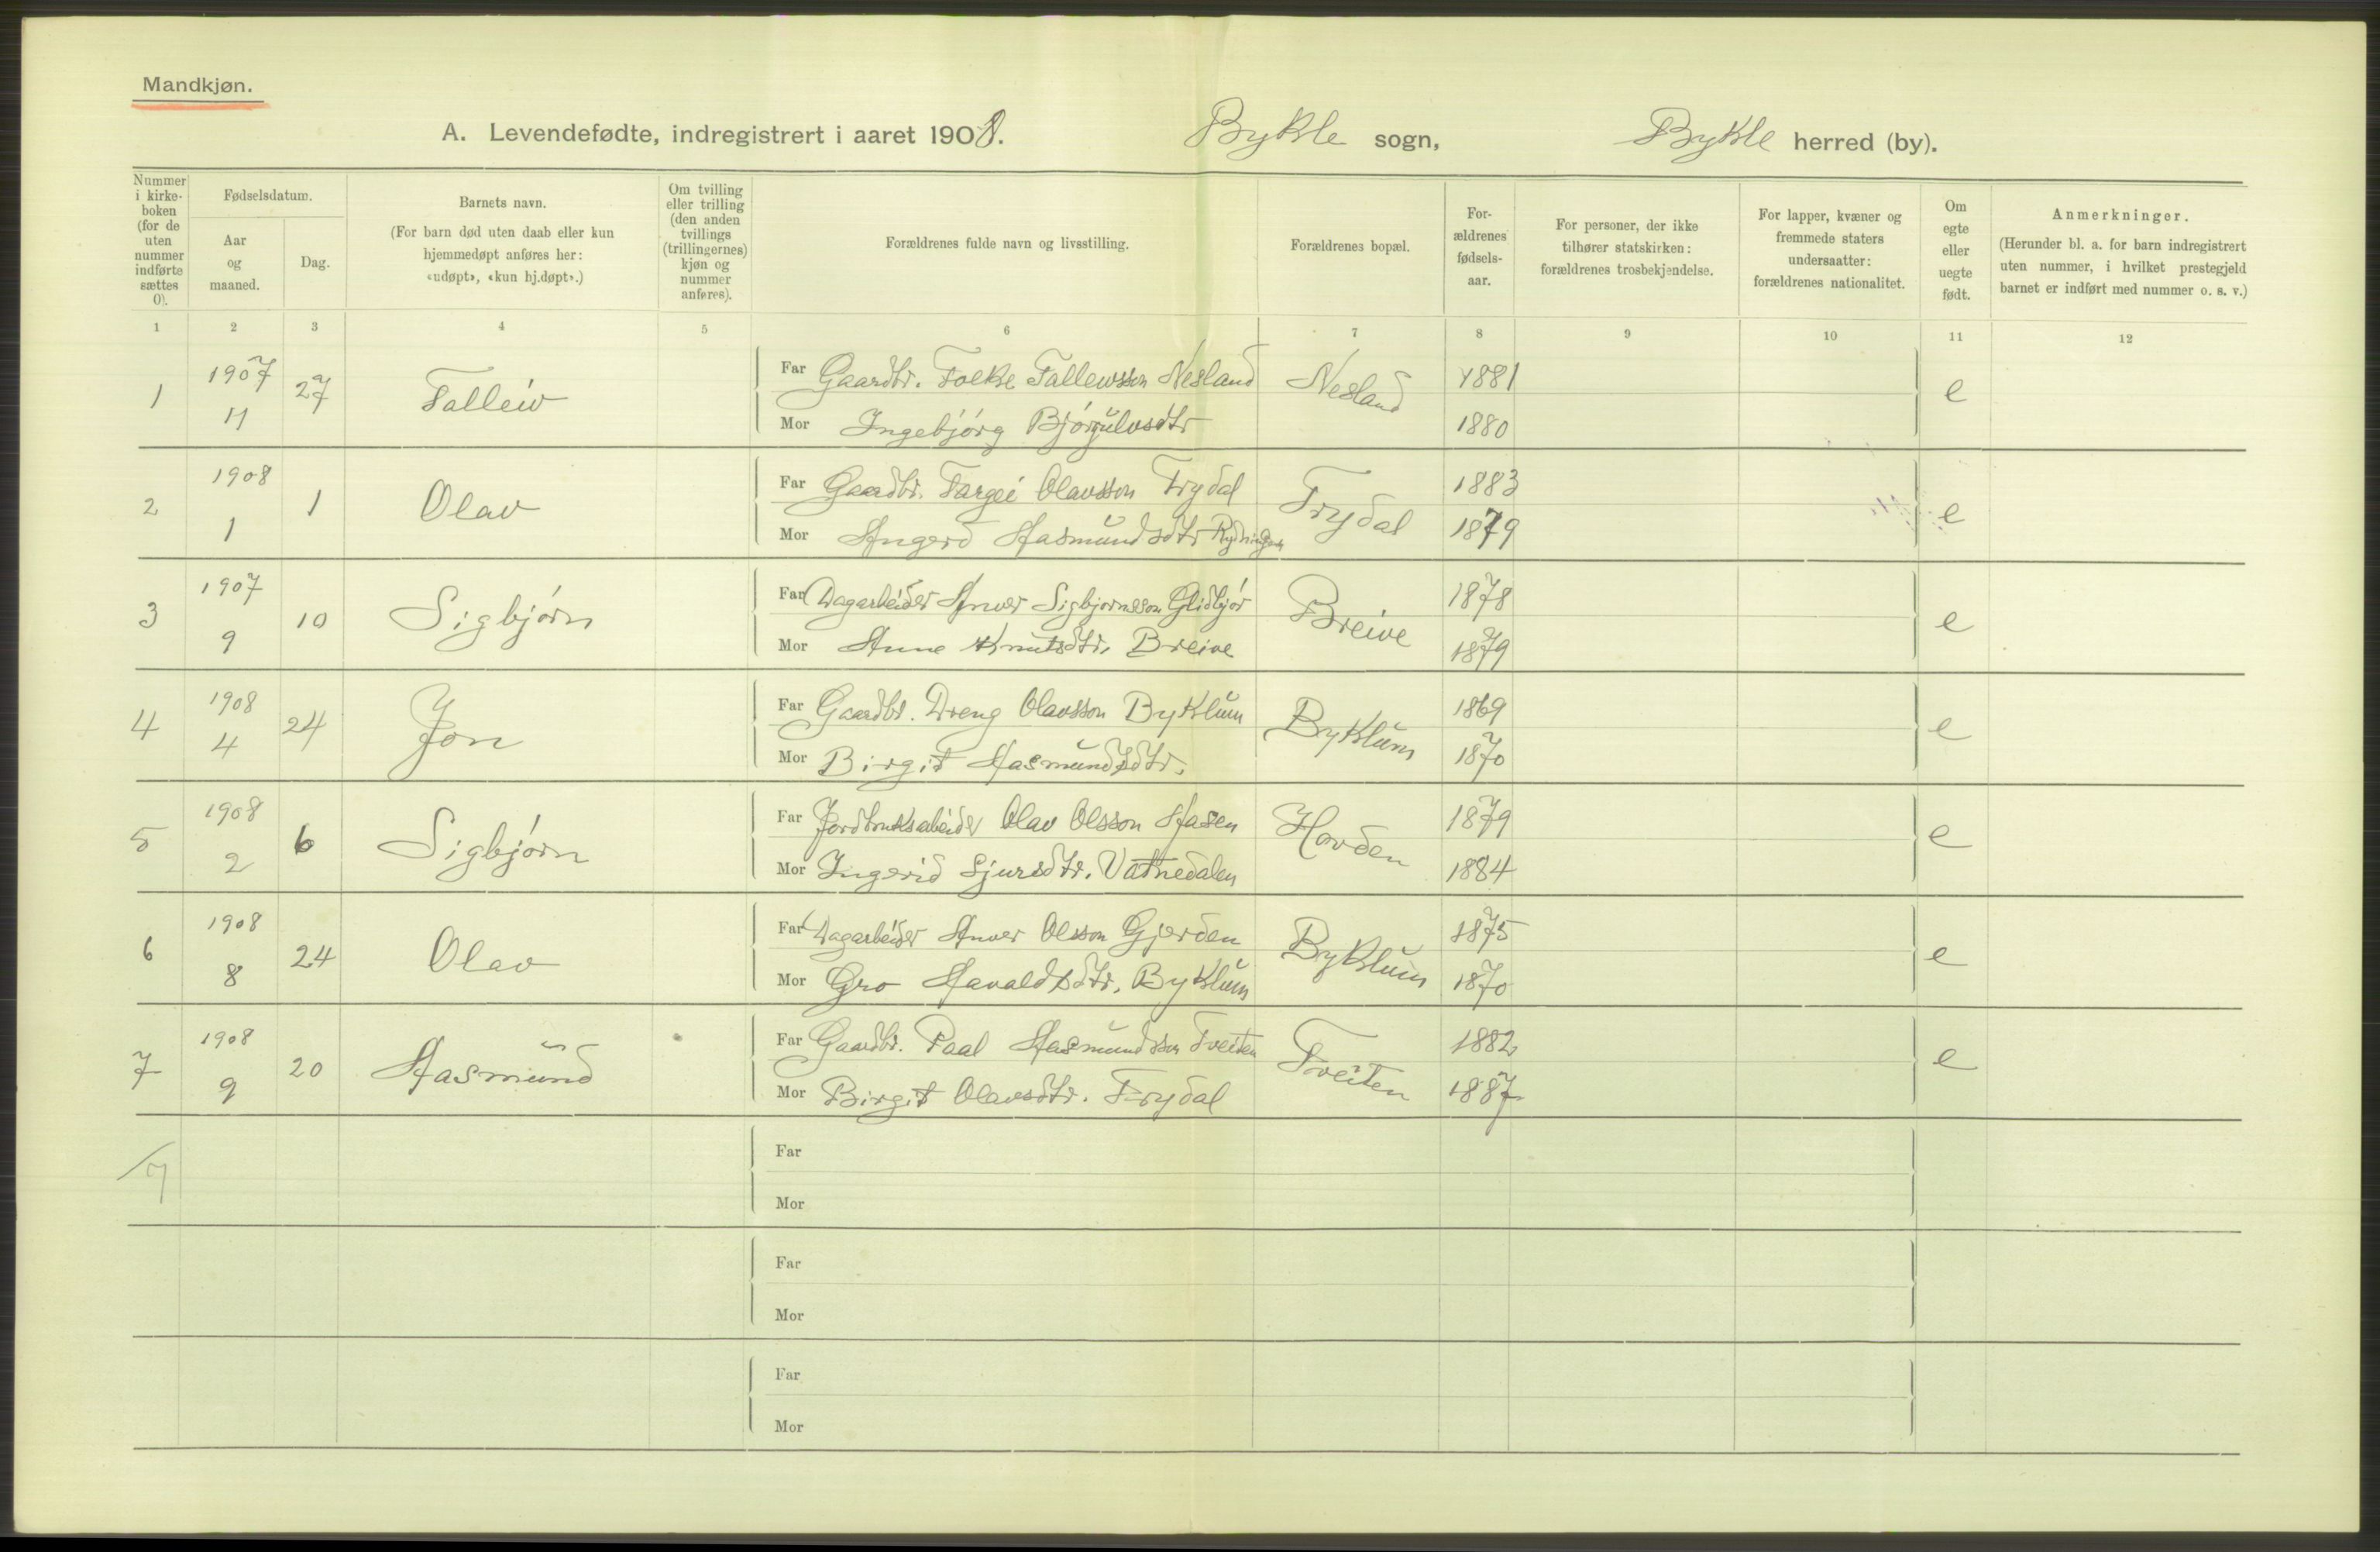 Mandkjøn.
A. Levendefødte, indregistrert i aaret 1908. Bykle sogn, Bykle herred (by).
Nummer i kirkeboken (for de uten nummer indførte sættes 0).
Fødselsdatum.
Aar og maaned.
Dag.
Barnets navn.
(For barn død uten daab eller kun hjemmedøpt anføres her: «udøpt», «kun hj.døpt».)
Om tvilling eller trilling (den anden tvillings (trillingernes) kjøn og nummer anføres).
Forældrenes fulde navn og livsstilling.
Forældrenes bopæl.
Forældrenes fødselsaar.
For personer, der ikke tilhører statskirken: forældrenes trosbekjendelse.
For lapper, kvæner og fremmede staters undersaatter: forældrenes nationalitet.
Om egte eller uegte født.
Anmerkninger.
(Herunder bl. a. for barn indregistrert uten nummer, i hvilket prestegjeld barnet er indført med nummer o. s. v.)
1 2 3 4 5 6 7 8 9 10 11 12
1 1907 11 27 Talleiv Far Gaardbr. Folke Talleivsson Nesland Nesland 1881 e
Mor Ingebjørg Bjørgulvsdtr 1880
2 1908 1 1 Olav Far Gaardbr. Targei Olavsson Trydal Trydal 1883 e
Mor Angerd Aasmundsdtr Rydningen 1879
3 1907 9 10 Sigbjørn Far Dagarbeider Anver Sigbjørnsson Glidbjør Breive 1878 e
Mor Anne Knutsdtr. Breive 1879
4 1908 4 24 Jon Far Gaardbr. Dreng Olavsson Byklum Byklum 1869 e
Mor Birgit Aasmundsdtr. 1870
5 1908 2 6 Sigbjørn Far Jordbruksarbeider Olav Olsson Aasen Hovden 1879 e
Mor Ingerid Sjursdtr. Vatnedalen 1884
6 1908 8 24 Olav Far Dagarbeider Anver Olsson Gjerden Byklum 1875 e
Mor Gro Havaldsdtr. Byklum 1870
7 1908 9 20 Aasmund Far Gaardbr. Paal Aasmundsson Tveiten Tveiten 1882 e
Mor Birgit Olavsdtr. Trydal 1887
7
Far
Mor
Far
Mor
Far
Mor